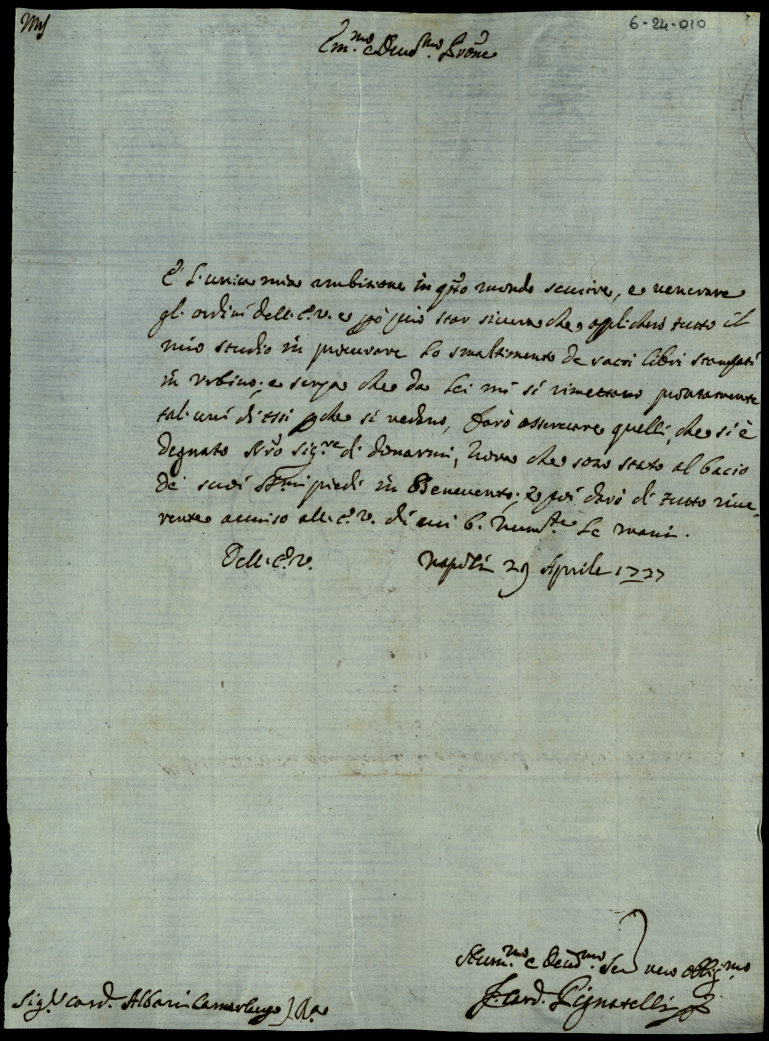 6-24-010
Em.mo e Reud.mo Sig.re Prone
È l'unica mia ambizione in q.sto mondo servire, e venerare
gl'ordini dell'E.V. e p.ciò può star sicura che applicherò tutto il
mio studio in procurare lo smaltimento de sacri libri stampati
in Urbino; e senza che da lei mi si rimettano prontamente
tal'uni di essi p che si vedano, farò osservare quelli, che si è
degnato N'ro Sig.re di donarmi, hora che sono stato al bacio
de' suoi SS.mi piedi in Benevento; e poi darò di tutto rive-
rente avviso all'E.V. di cui b. hum.te le mani.
Dell'E.V. Napoli 29 Aprile 1727
Hum.mo e Deu.mo Ser. vero obblig.mo
F. Card. Pignatelli
Sig.r Card. Albani Camerlengo